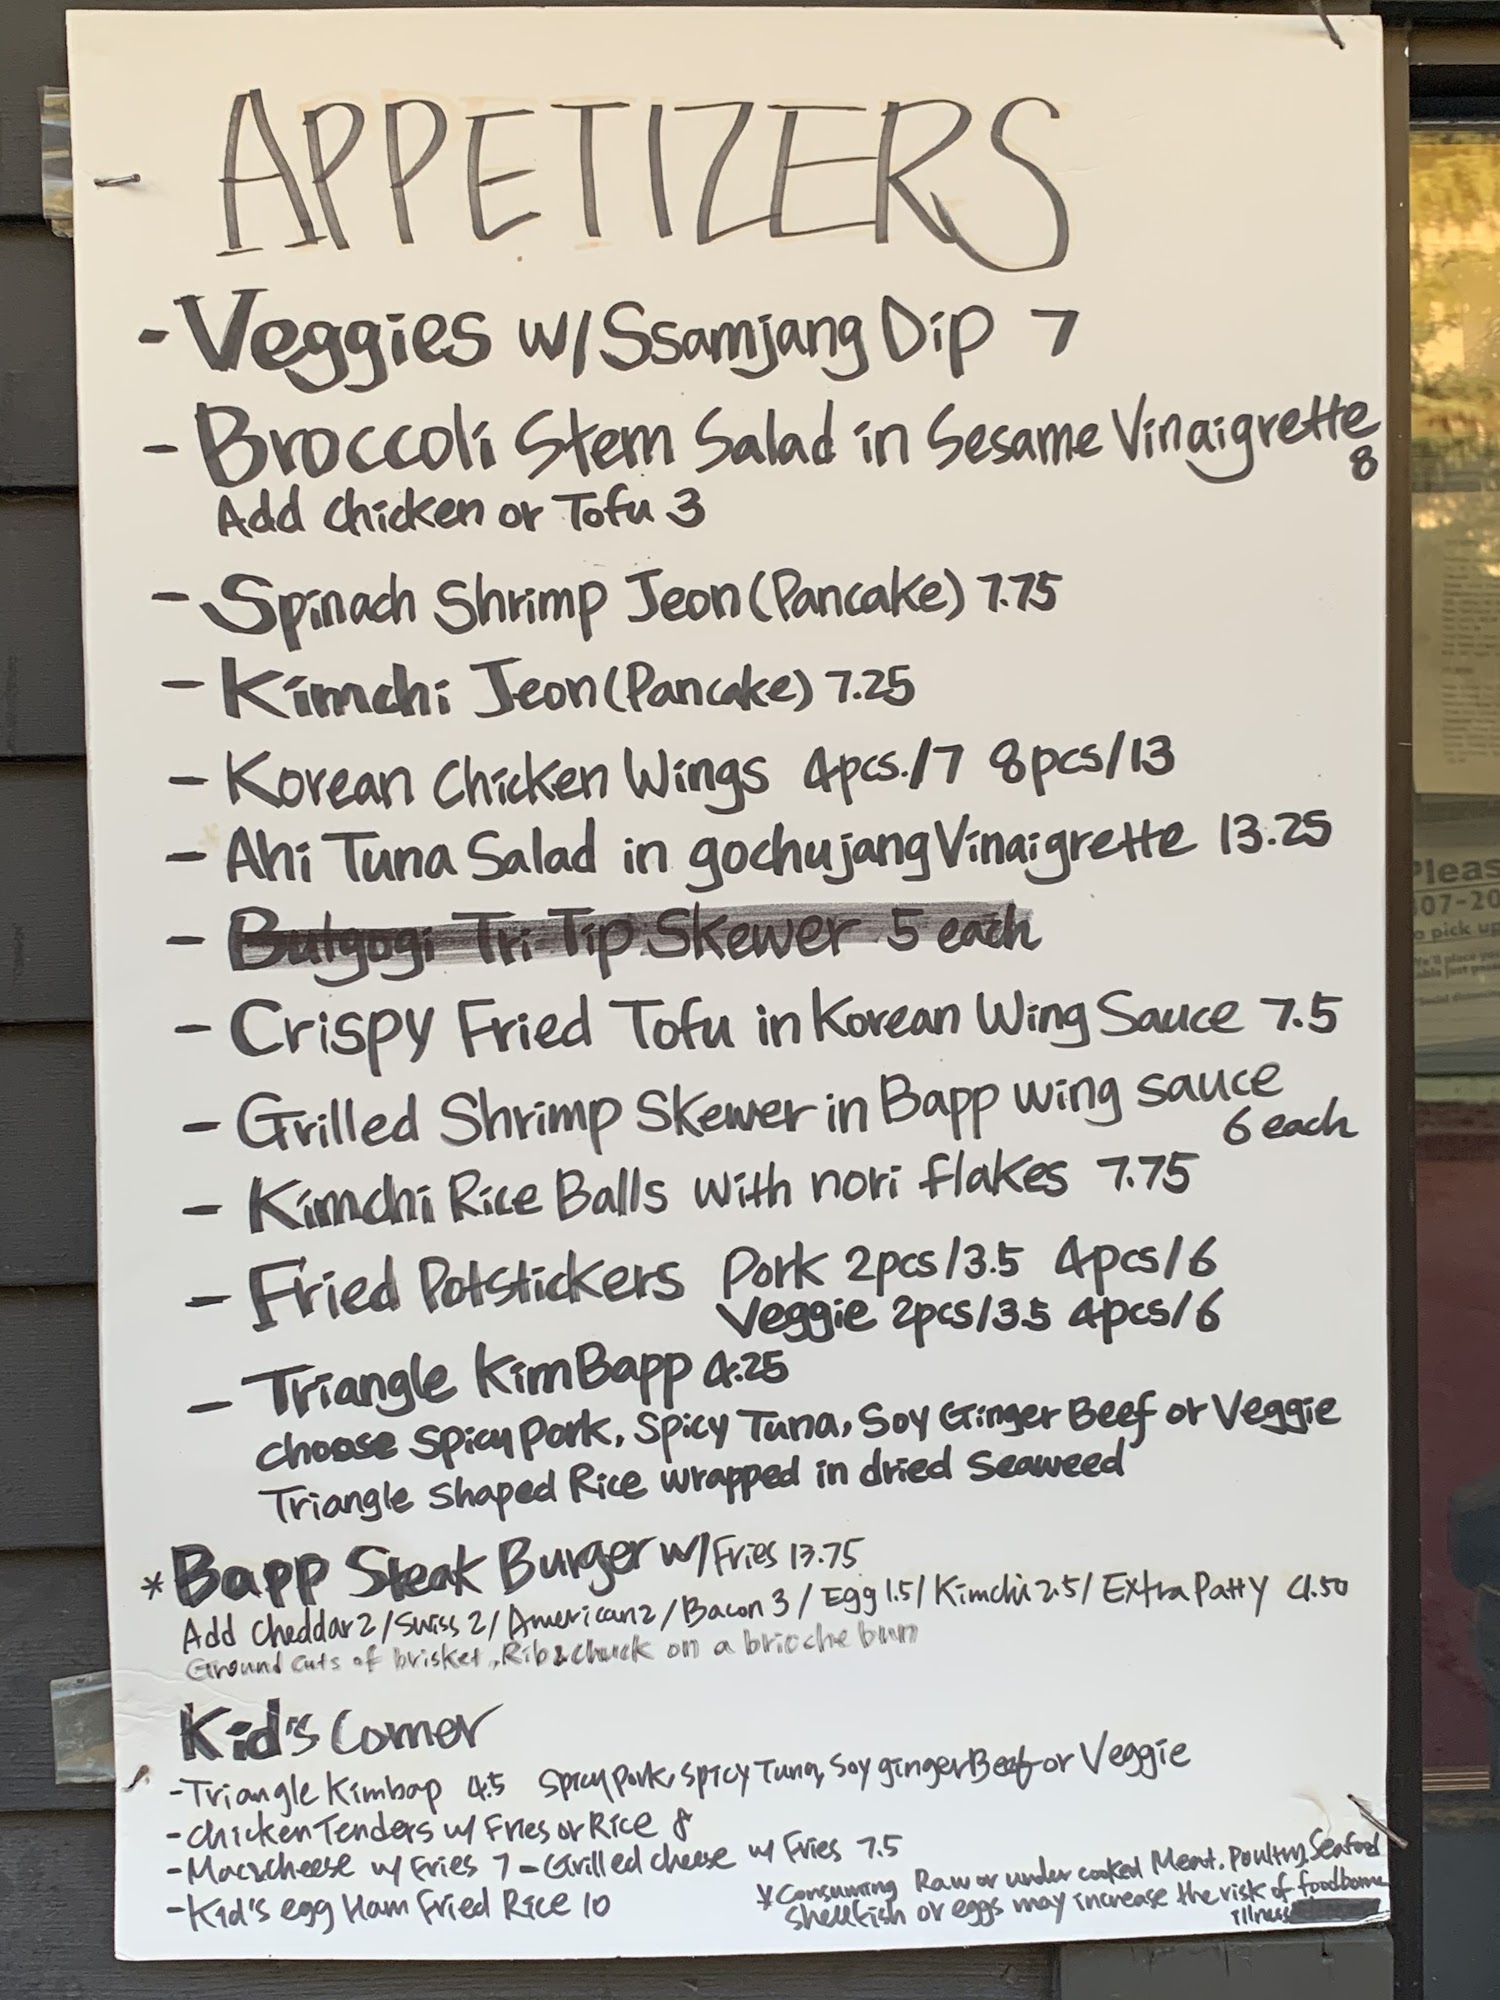 APPETIZERS
- Veggies w/ Ssamjang Dip 7
- Broccoli Stem Salad in Sesame Vinaigrette
8
Add Chicken or Tofu 3
- Spinach Shrimp Jeon (Pancake) 7.75
- Kimchi Jeon (Pancake) 7.25
- Korean Chicken Wings 4pcs./7 8pcs/13
- Ahi Tuna Salad in gochujang Vinaigrette 13.25
- Bulgogi Tri-Tip Skewer 5 each
- Crispy Fried Tofu in Korean Wing Sauce 7.5
- Grilled Shrimp Skewer in Bapp wing sauce
6 each
- Kimchi Rice Balls with nori flakes 7.75
- Fried Potstickers Pork 2pcs/3.5 4pcs/6
Veggie 2pcs/3.5 4pcs/6
- Triangle KimBapp 4.25
choose Spicy Pork, Spicy Tuna, Soy Ginger Beef or Veggie
Triangle Shaped Rice wrapped in dried Seaweed
* Bapp Steak Burger w/ Fries 13.75
Add Cheddar 2/Swiss 2/American 2/Bacon 3/Egg 1.5/Kimchi 2.5/Extra Patty 4.50
Ground cuts of brisket, Rib & Chuck on a brioche bun
Kid's Corner
- Triangle Kimbap 4.5 Spicy Pork, Spicy Tuna, Soy ginger Beef or Veggie
- Chicken Tenders w/ Fries or Rice 8
- Mac&cheese w/ Fries 7 - Grilled cheese w/ Fries 7.5
- Kid's egg Ham Fried Rice 10
* Consuming Raw or under cooked Meat, Poultry, Seafood
Shellfish or eggs may increase the risk of foodborne
illness
Pleas
607-20
o pick up